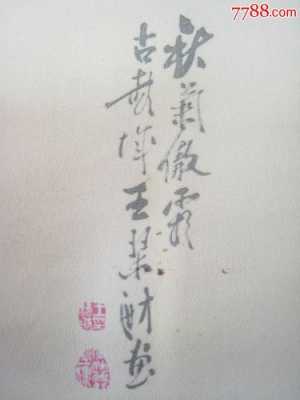 7788.com
秋菊傲霜
古彭城王琴财画